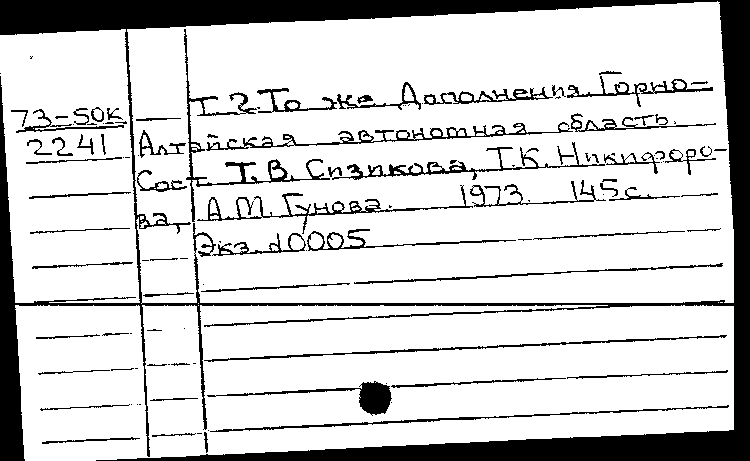 Т.2. То же. Дополнения. Горно-
73-50к
2241
Алтайская автономная область.
Сост. Т.В. Сизикова, Т.К. Никифоро-
ва, А.М. Гунова. 1973. 145с.
Экз. d0005